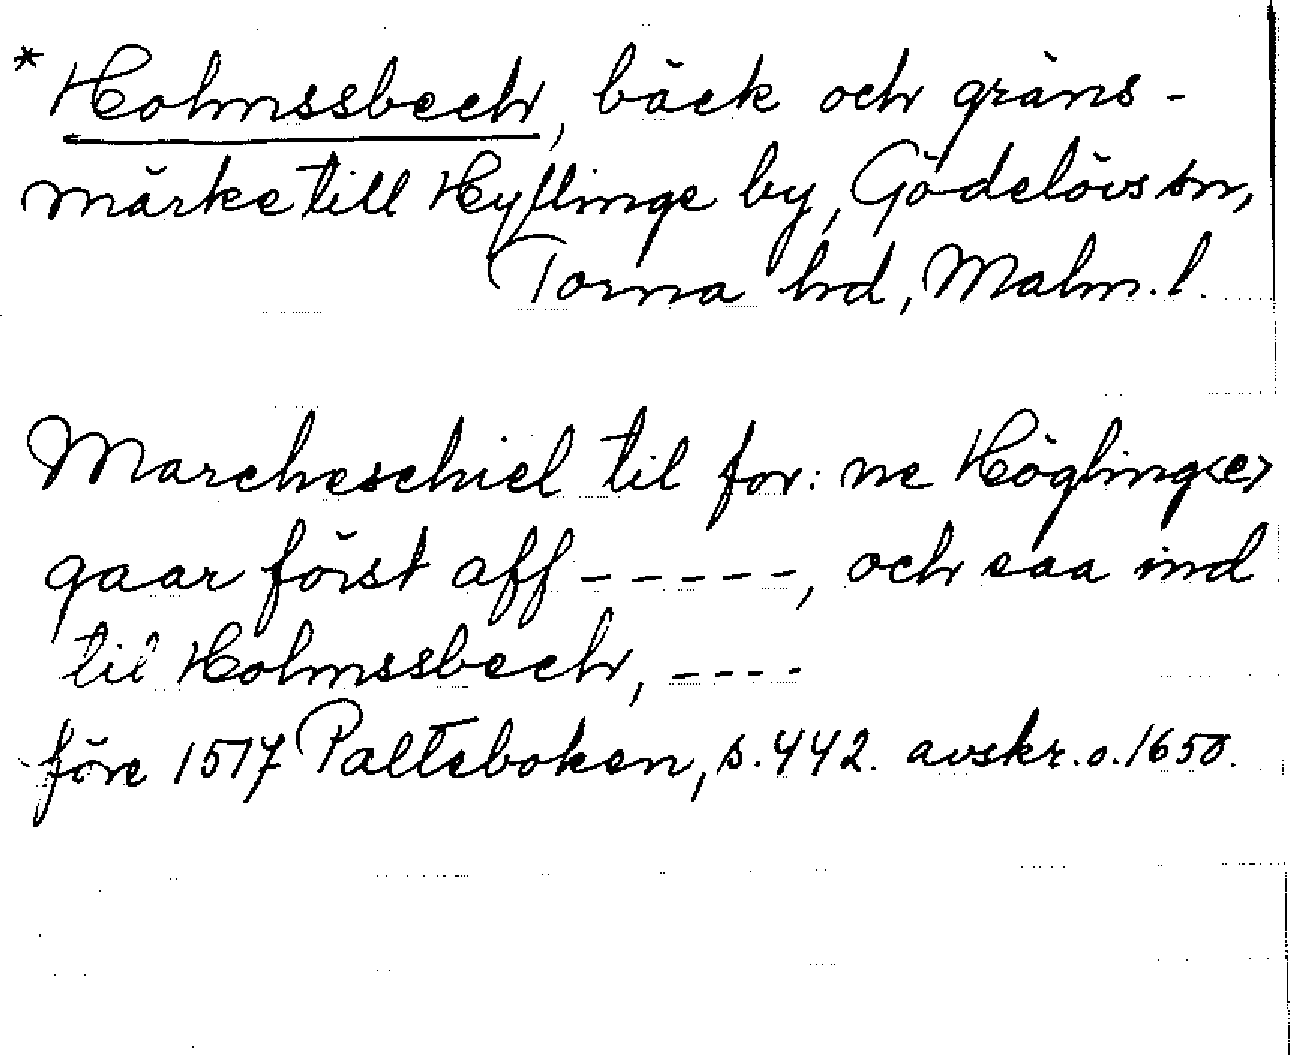 * Holmssbech, bäck och gräns-
märke till Hyllinge by, Gödelövs sn,
Torna hd, Malm. l.
Marcheschiel til for: ne Högling<e>
gaar först aff -----, och saa ind
til Holmssbech, ----
före 1517 Palteboken, s. 442. avskr. o. 1650.